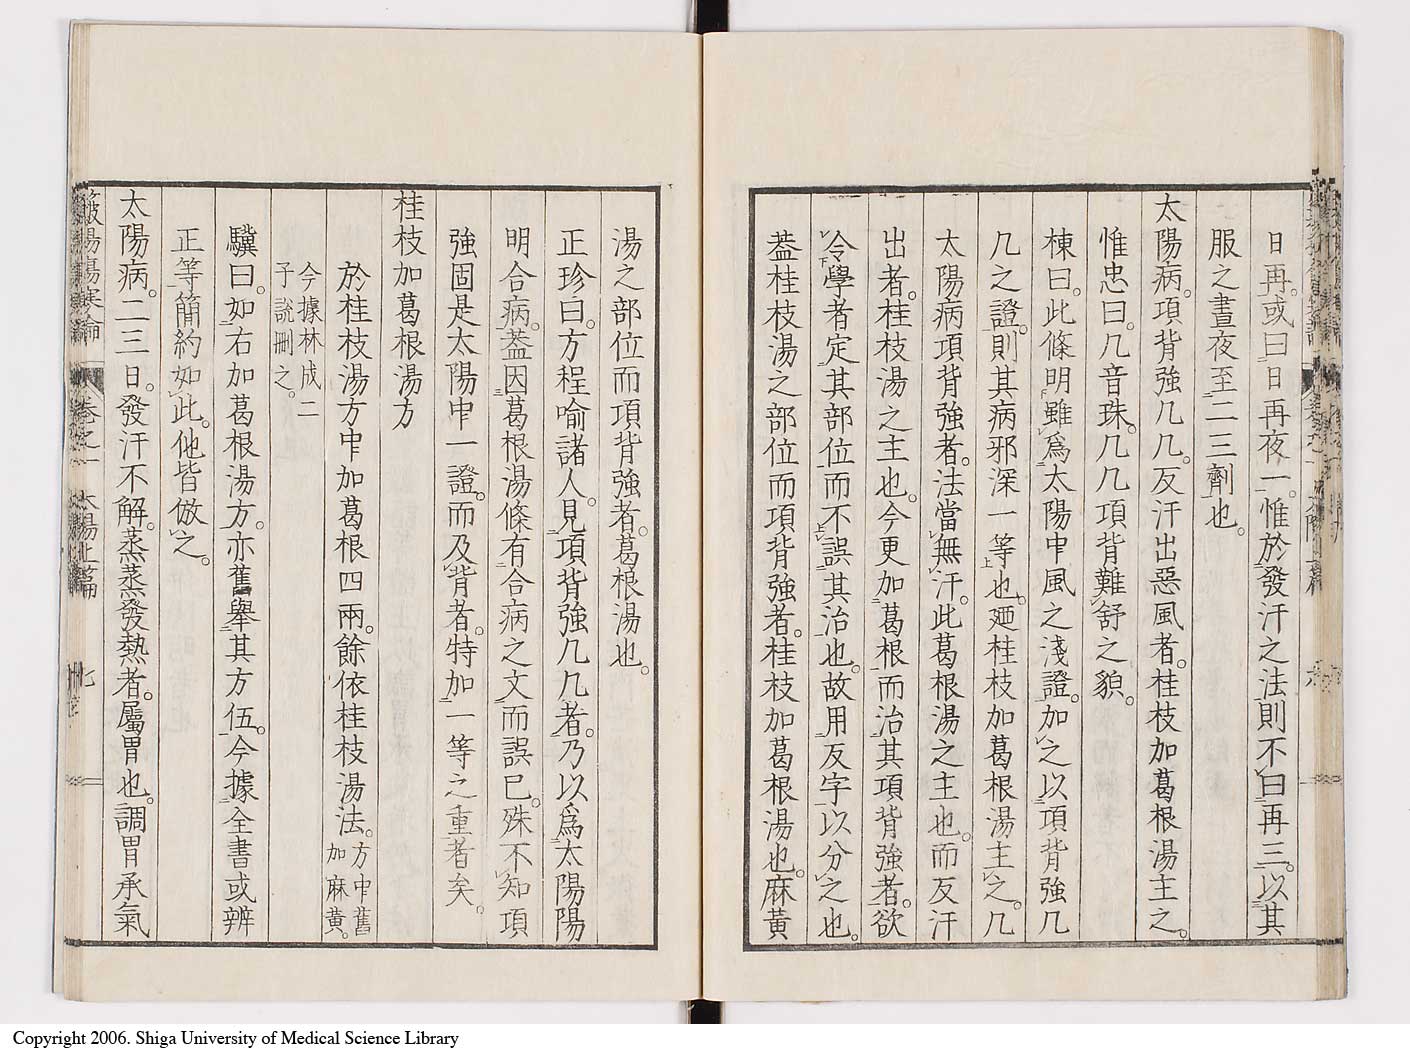 日再。或曰日再夜一。惟於發汗之法則不曰再三。以其
服之晝夜至二三劑也。
太陽病。項背強几几。反汗出惡風者。桂枝加葛根湯主之。
惟忠曰。几音珠。几几項背難舒之貌。
棟曰。此條明雖爲太陽中風之淺證。加之以項背強几
几之證。則其病邪深一等也。廼桂枝加葛根湯主之。凡
太陽病項背強者。法當無汗。此葛根湯之主也。而反汗
出者。桂枝湯之主也。今更加葛根而治其項背強者。欲
令學者定其部位而不誤其治也。故用反字以分之也。
葢桂枝湯之部位而項背強者。桂枝加葛根湯也。麻黃
湯之部位而項背強者。葛根湯也。
正珍曰。方程喻諸人。見項背強几几者。乃以爲太陽陽
明合病。葢因葛根湯條有合病之文而誤已。殊不知項
強固是太陽中一證。而及背者。特加一等之重者矣。
桂枝加葛根湯方
於桂枝湯方中加葛根四兩。餘依桂枝湯法。方中舊
加麻黃。
今據林成二
子說刪之。
驥曰。如右加葛根湯方。亦舊舉其方伍。今據全書或辨
正等簡約如此。他皆倣之。
太陽病。二三日。發汗不解。蒸蒸發熱者。屬胃也。調胃承氣
傷寒論 卷之一 太陽上篇 七